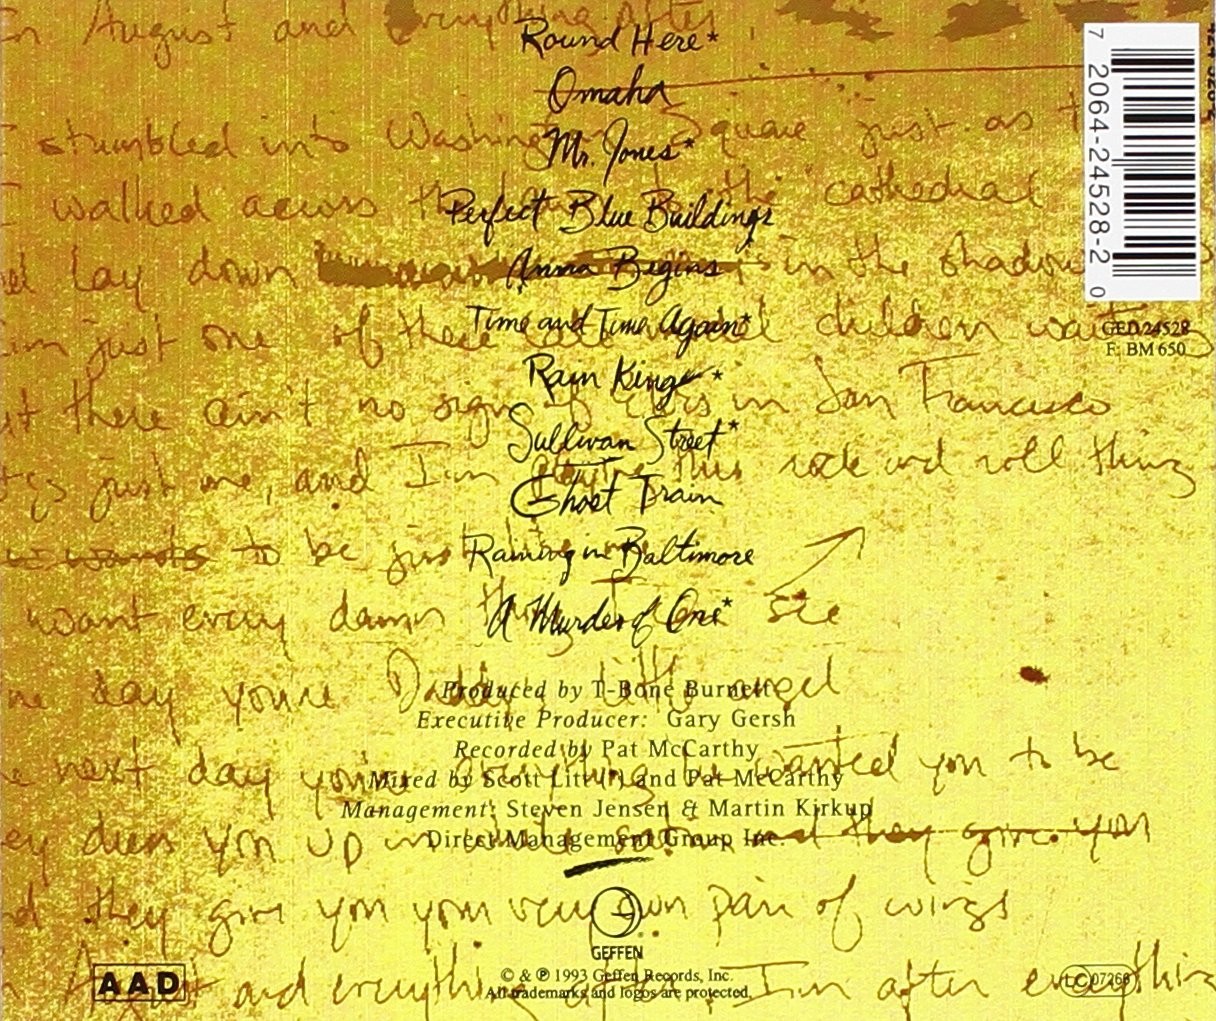 In August and Everything After
Round Here*
Omaha
stumbled into Washington Square just as
Mr. Jones*
walked across the to the cathedral
Perfect Blue Buildings
lay down in the shadow
Anna Begins
Time and Time Again*
just one of these late model children waiting
GED 24528
F: BM 650
Rain King *
there ain't no sign of in San Francisco
Sullivan Street*
just me, and I'm this rock and roll thing
Ghost Train
wants to be just
Raining in Baltimore
want every damn thing I see
A Murder of One*
day you're Daddy's little angel
Produced by T-Bone Burnett
Executive Producer: Gary Gersh
Recorded by Pat McCarthy
next day you're everything he wanted you to be
Mixed by Scott Litt (*) and Pat McCarthy
Management: Steven Jensen & Martin Kirkup
dress you up in and they give you
Direct Management Group Inc.
they give you your very own pair of wings
GEFFEN
AAD
© & ℗ 1993 Geffen Records, Inc.
All trademarks and logos are protected.
and everything after I'm after everything
LC 07266
7 2064-24528-2 0